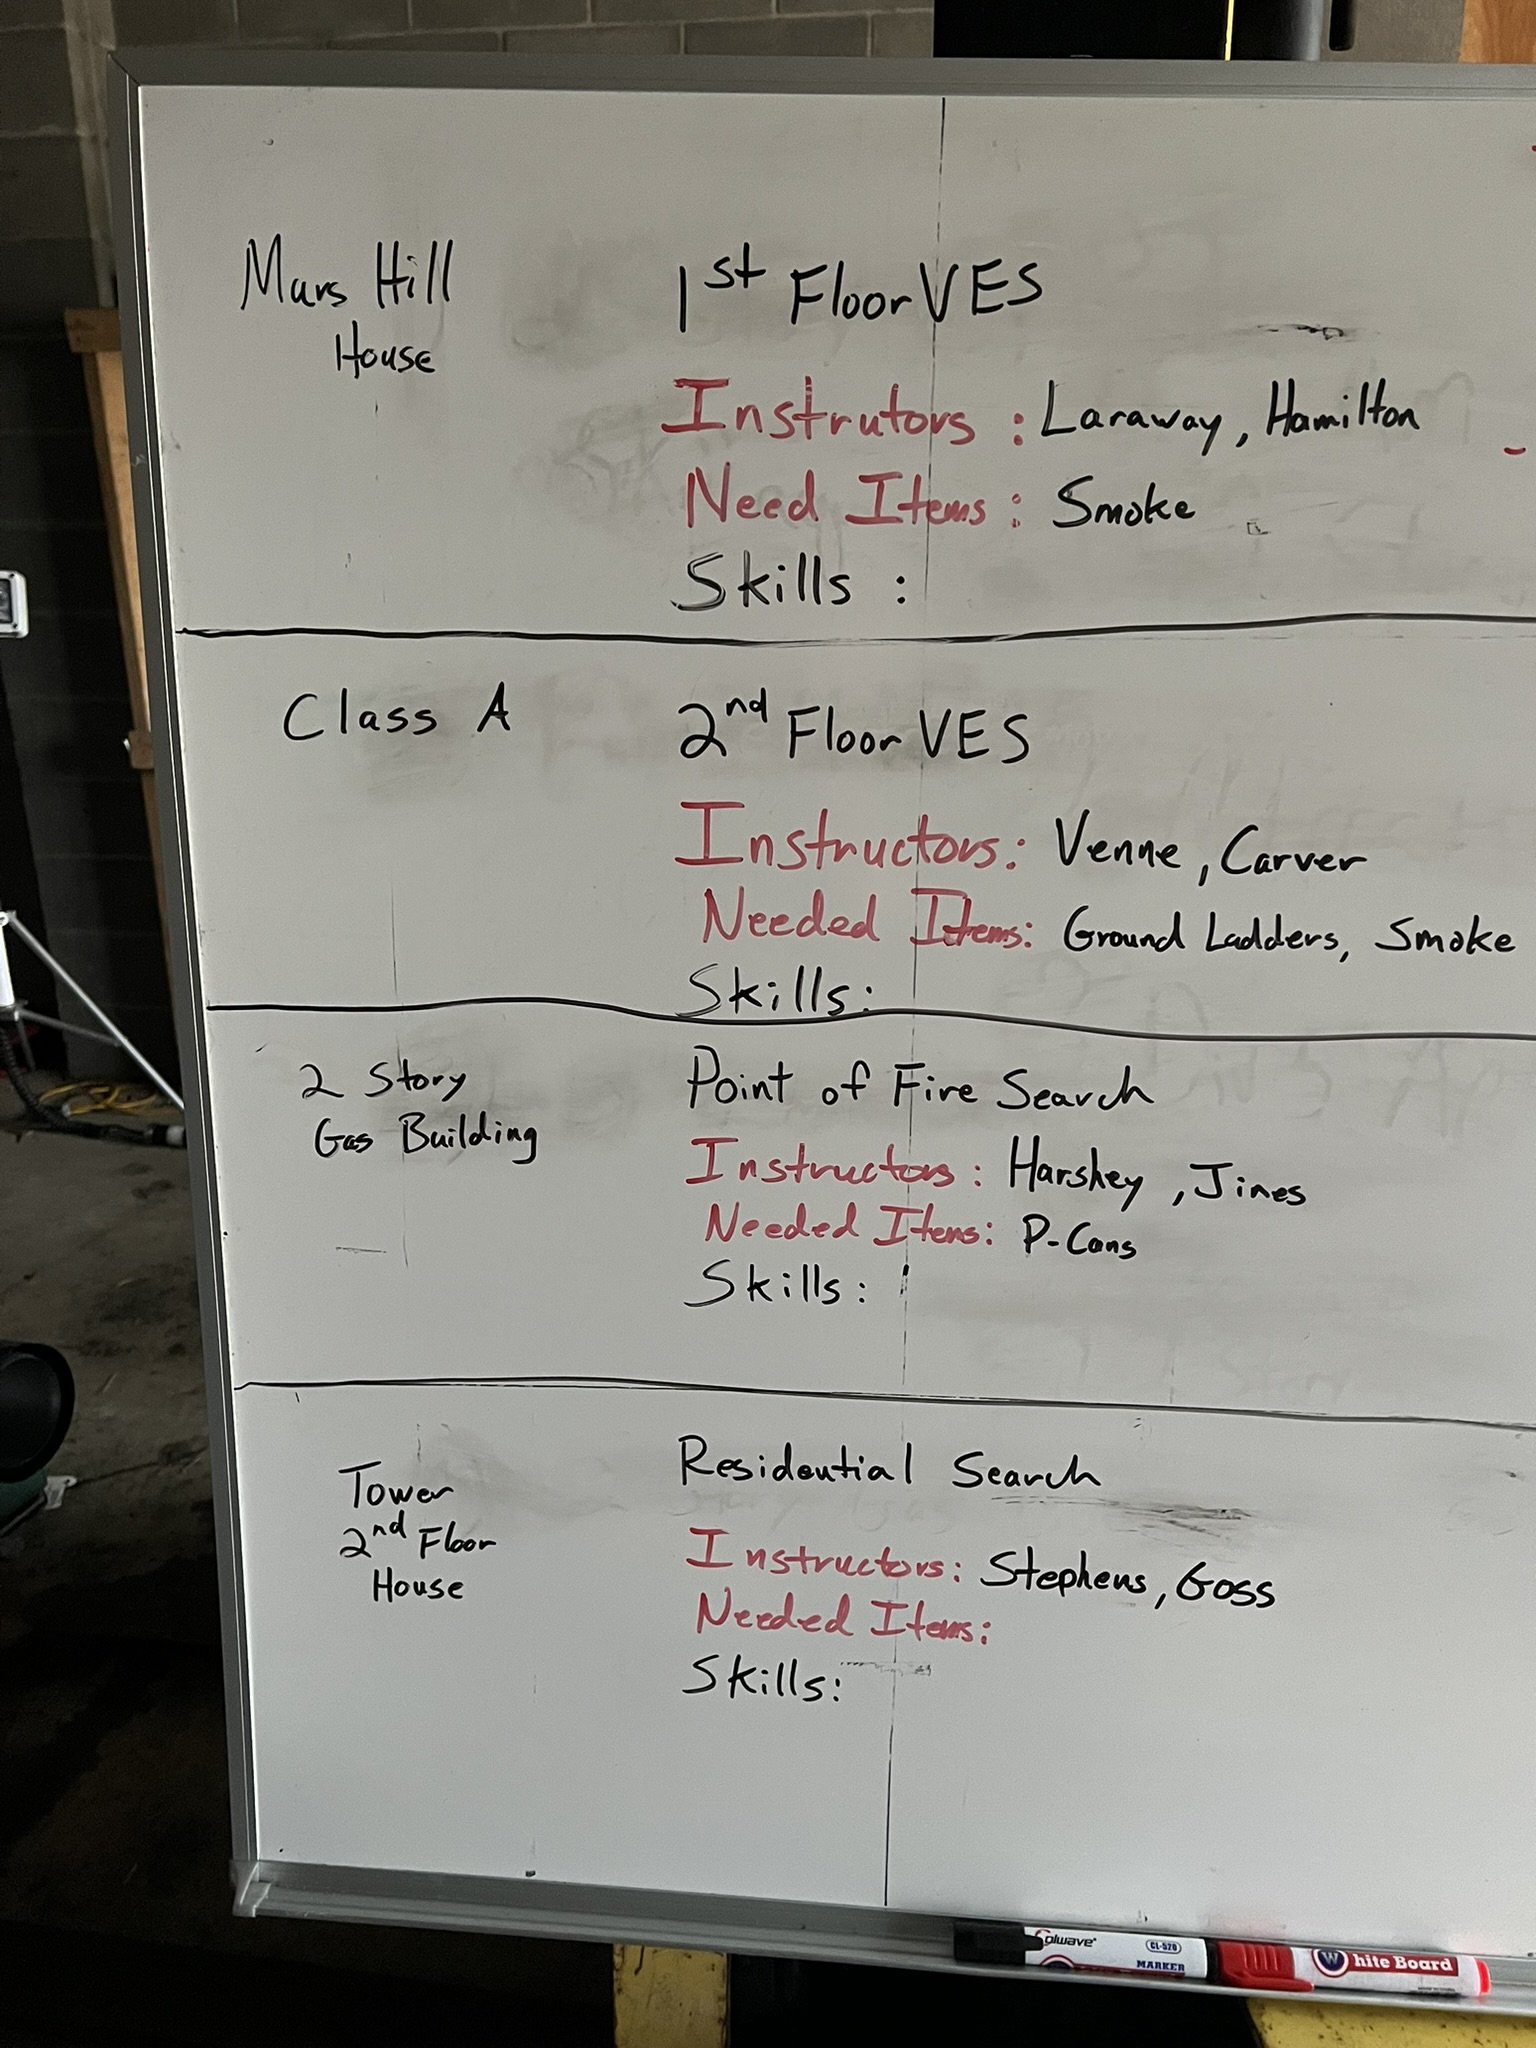 Mars Hill
House
1st Floor VES
Instrutors : Laraway, Hamilton
Need Items : Smoke
Skills :
Class A
2nd Floor VES
Instructors: Venne, Carver
Needed Items: Ground Ladders, Smoke
Skills:
2 Story
Gas Building
Point of Fire Search
Instructors: Harshey, Jines
Needed Items: P-Cans
Skills:
Tower
2nd Floor
House
Residential Search
Instructors: Stephens, Goss
Needed Items:
Skills:
olwave
CL-520
MARKER
White Board